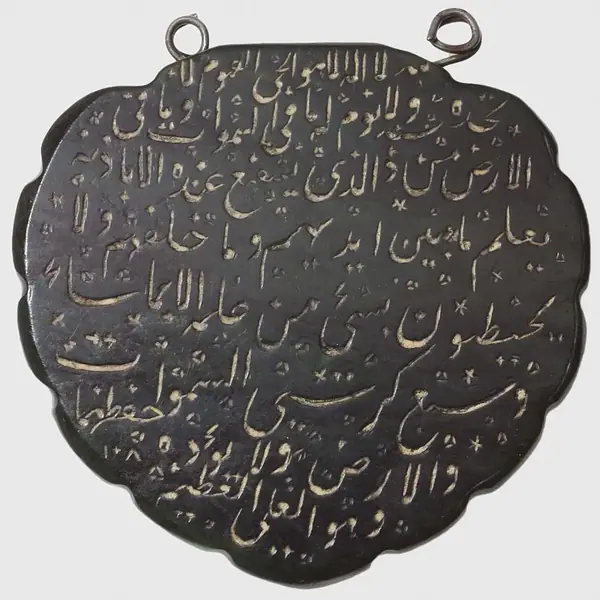 الله لا اله الا هو الحي القيوم لا
تاخذه سنة ولا نوم له ما في السموات وما في
الارض من ذا الذي يشفع عنده الا باذنه
يعلم ما بين ايديهم وما خلفهم ولا
يحيطون بشئ من علمه الا بما شاء
وسع كرسيه السموات
والارض ولا يؤده حفظهما
وهو العلي العظيم
١٢٠٨